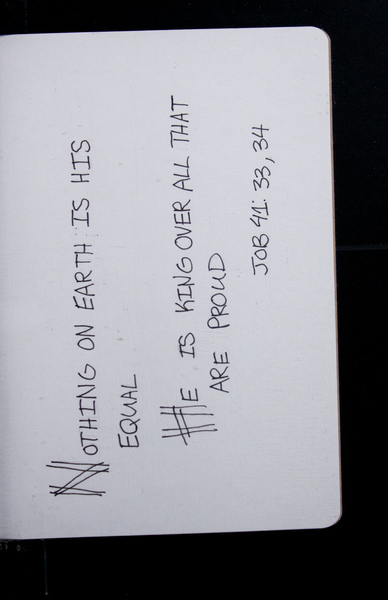 NOTHING ON EARTH IS HIS
EQUAL
HE IS KING OVER ALL THAT
ARE PROUD
JOB 41: 33, 34